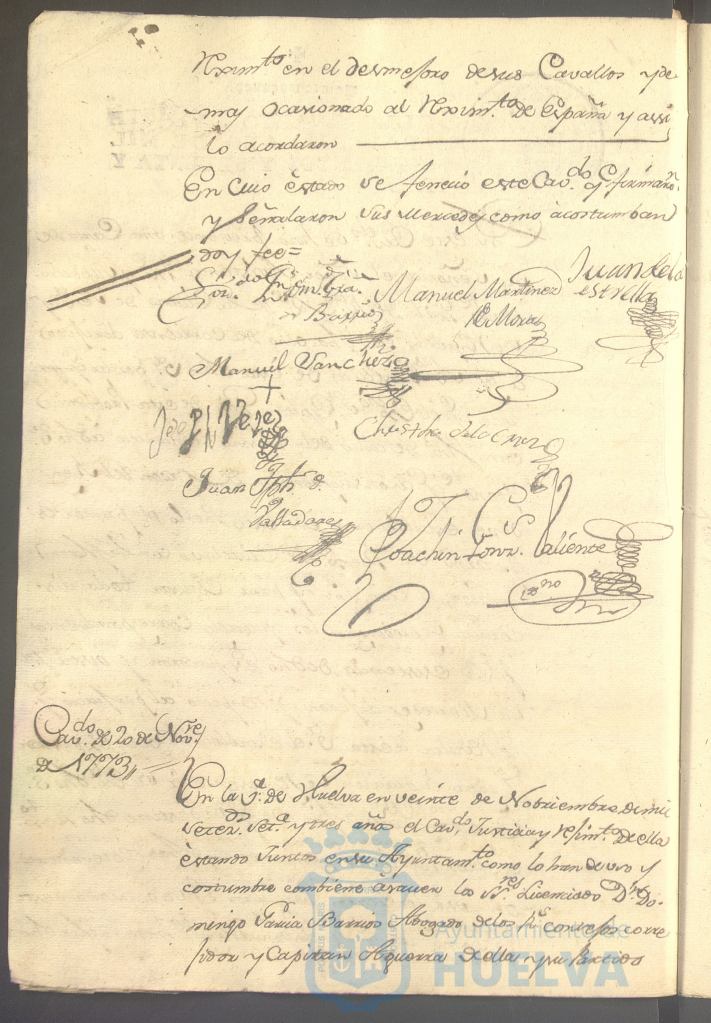 Rximto en el desmesoro de sus Cavallos y de
mas ocasionado al Rximto de España y assi
lo acordaron
En cuio estado se feneció este Cavdo q. firmaron
y señalaron sus mercedes como acostumban
doy fee=
Barrios
Manuel Martinez
de Mora
Juan de la
estrella
Manuel Sanchez
Perez
Christbal de la Cruz
Juan Jph. d.
Valladares
Joachin Gonz. Valiente
esno
Cavdo. de 20 de Novre
de 1773
En la va. de Huelva en veinte de Nobiembre de mil
setecos. seta. y tres años el Cavdo. Justicia y Reximto de ella
estando juntos en su Ayuntamto como lo han de uso y
costumbre combiene a saver los Sres Licenciado Dn Do
mingo Garcia Barrios Abogado de los Rs. consejos corre
jidor y Capitan Aguerra de ella y su partido
Ayuntamiento de
HUELVA